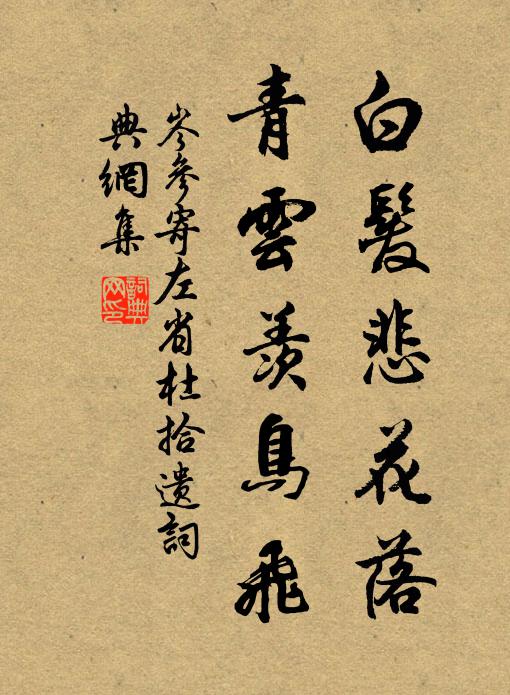 白髮悲花落
青雲羨鳥飛
岑參寄左省杜拾遺詞
典網集
詞典
网印